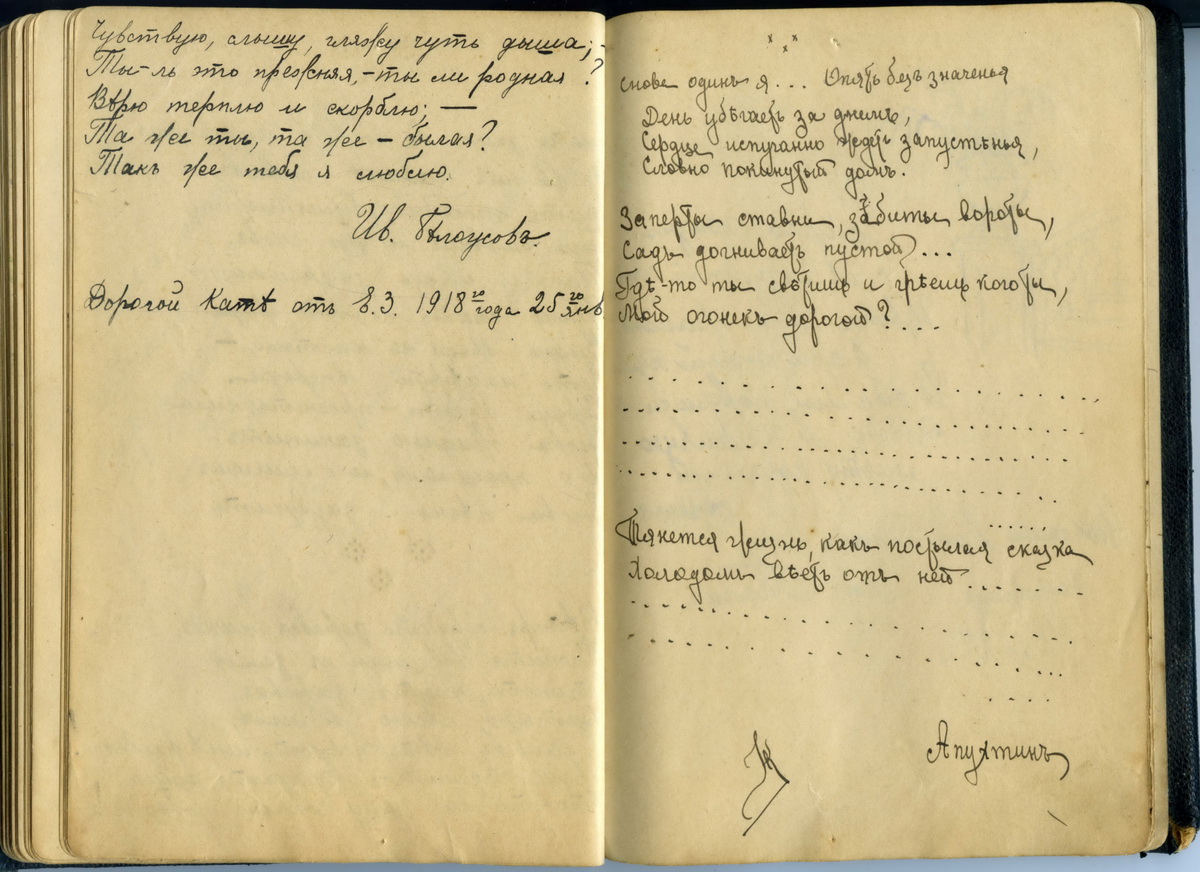 Чувствую, слышу, гляжу чуть дыша; -
Ты-ль это прежняя, - ты ли родная?
Вѣрю терплю и скорблю; —
Та же ты, та же - былая?
Такъ же тебя я люблю.
Ив. Бѣлоусовъ.
Дорогой Катѣ отъ Е.З. 1918 го года 25 го янв.
Снова одинъ я... Опять безъ значенья
День убѣгаетъ за днемъ,
Сердце испуганно ждетъ запустѣнья,
Словно покинутый домъ.
Заперты ставни, забиты вороты,
Садъ догниваетъ пустой...
Гдѣ-то ты свѣтишь и грѣешь кого ты,
Мой огонекъ дорогой?...
Тянется жизнь, какъ постылая сказка
Холодомъ вѣетъ отъ ней.........
Апухтинъ